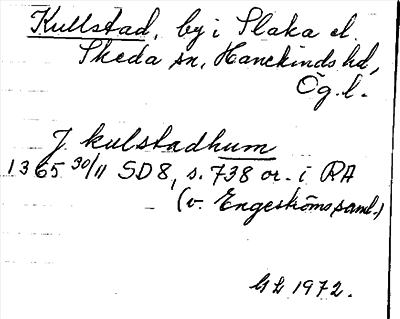 Kullstad, by i Slaka el.
Skeda sn, Hanekinds hd,
Ög.l.
J kulstadhum
1365 30/11 SD8, s. 738 or. i RA
(v. Engeströms saml.)
1972.